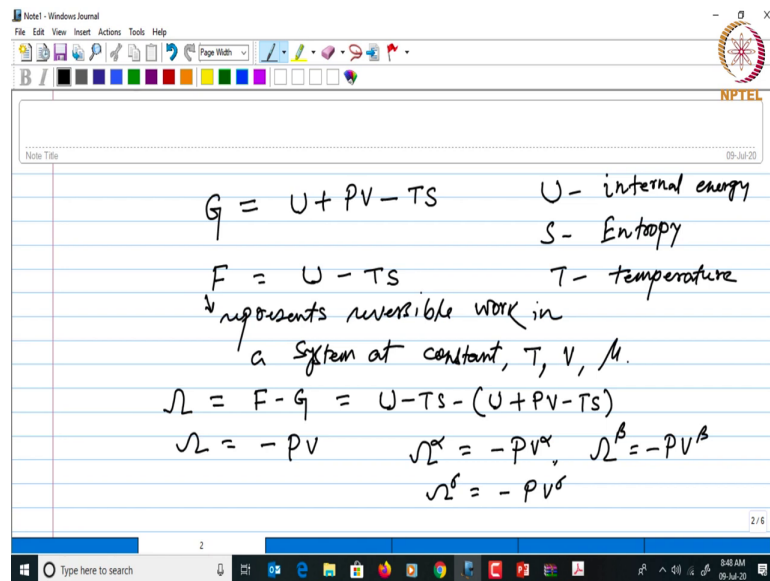 Note1 - Windows Journal
File Edit View Insert Actions Tools Help
Page Width
B I
NPTEL
Note Title
09-Jul-20
G = U + PV - TS
U - internal energy
S - Entropy
F = U - TS
T - temperature
↓ represents reversible work in
a system at constant, T, V, μ.
Ω = F - G = U - TS - (U + PV - TS)
Ω = - PV
Ω^α = - PV^α, Ω^β = - PV^β
Ω^σ = - PV^σ
2/6
2
Type here to search
8:48 AM
09-Jul-20